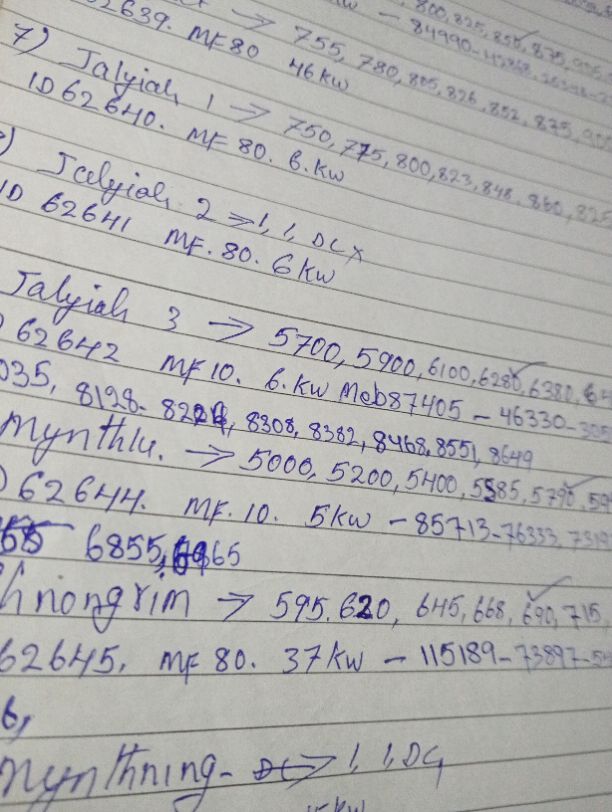 800, 825, 850, 875, 905
- 84990 -
→ 755, 780, 805, 826, 852, 875, 900
2639. MF 80 46 KW
7) Jalyiah 1 → 750, 775, 800, 823, 848, 860, 825
ID 62640. MF 80. 6. KW
) Jalyiah 2 → 1, 1, DCX
ID 62641 MF. 80. 6 KW
Jalyiah 3 → 5700, 5900, 6100, 6280, 6380, 64
62642 MF 10. 6. KW Mob 87405 - 46330 - 305
035, 8128- 8224, 8308, 8382, 8468, 8551, 8649
Mynthlu. → 5000, 5200, 5400, 5585, 5790, 59
62644. MF. 10. 5KW - 85713 - 76333,
6855, 6965
hnongrim → 595. 620, 645, 668, 690, 715,
62645, MF 80. 37 KW - 115189 - 73897 - 54
6,
Mynthning - 1, 1, DC
KW